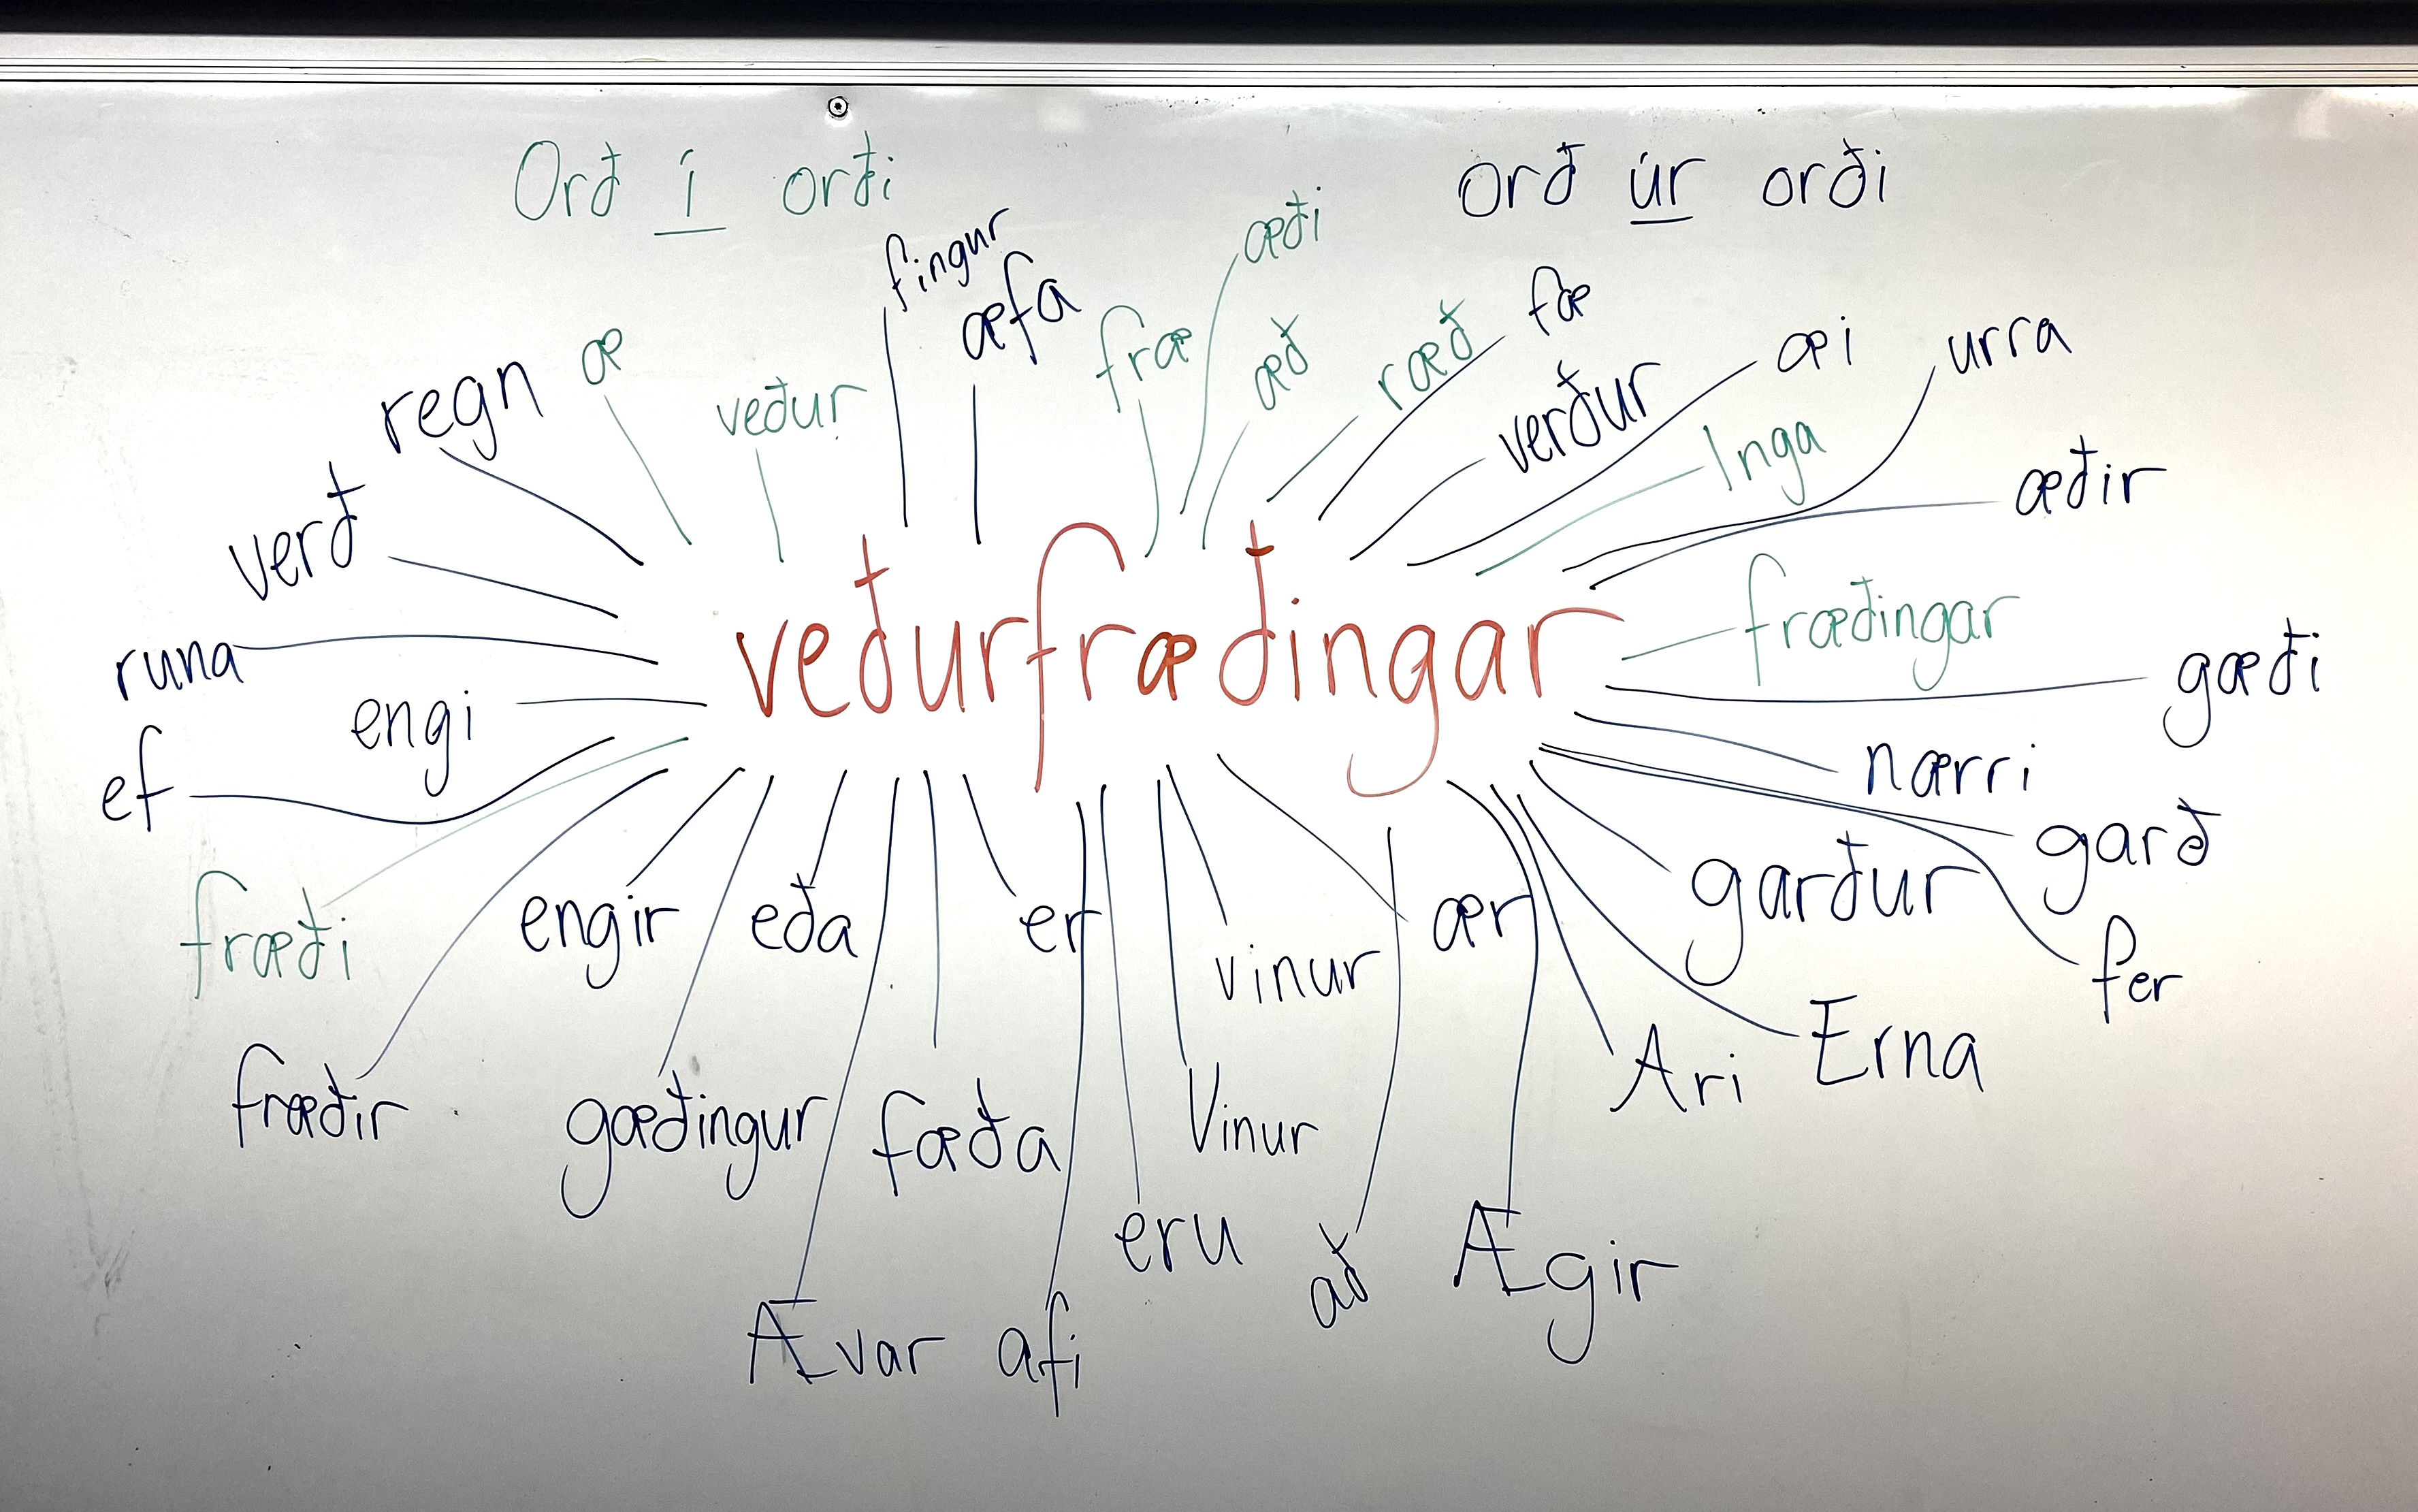 Orð í orði
Orð úr orði
fingur
æfa
æði
fræ
æð
ræð
fæ
æi
urra
regn
æ
veður
verður
Inga
æðir
verð
fræðingar
runa
veðurfræðingar
gæði
engi
nærri
ef
garð
fræði
engir
eða
er
vinur
ær
garður
fer
fræðir
gæðingur
fæða
Vinur
Ari
Erna
eru
að
Ægir
Ævar
afi